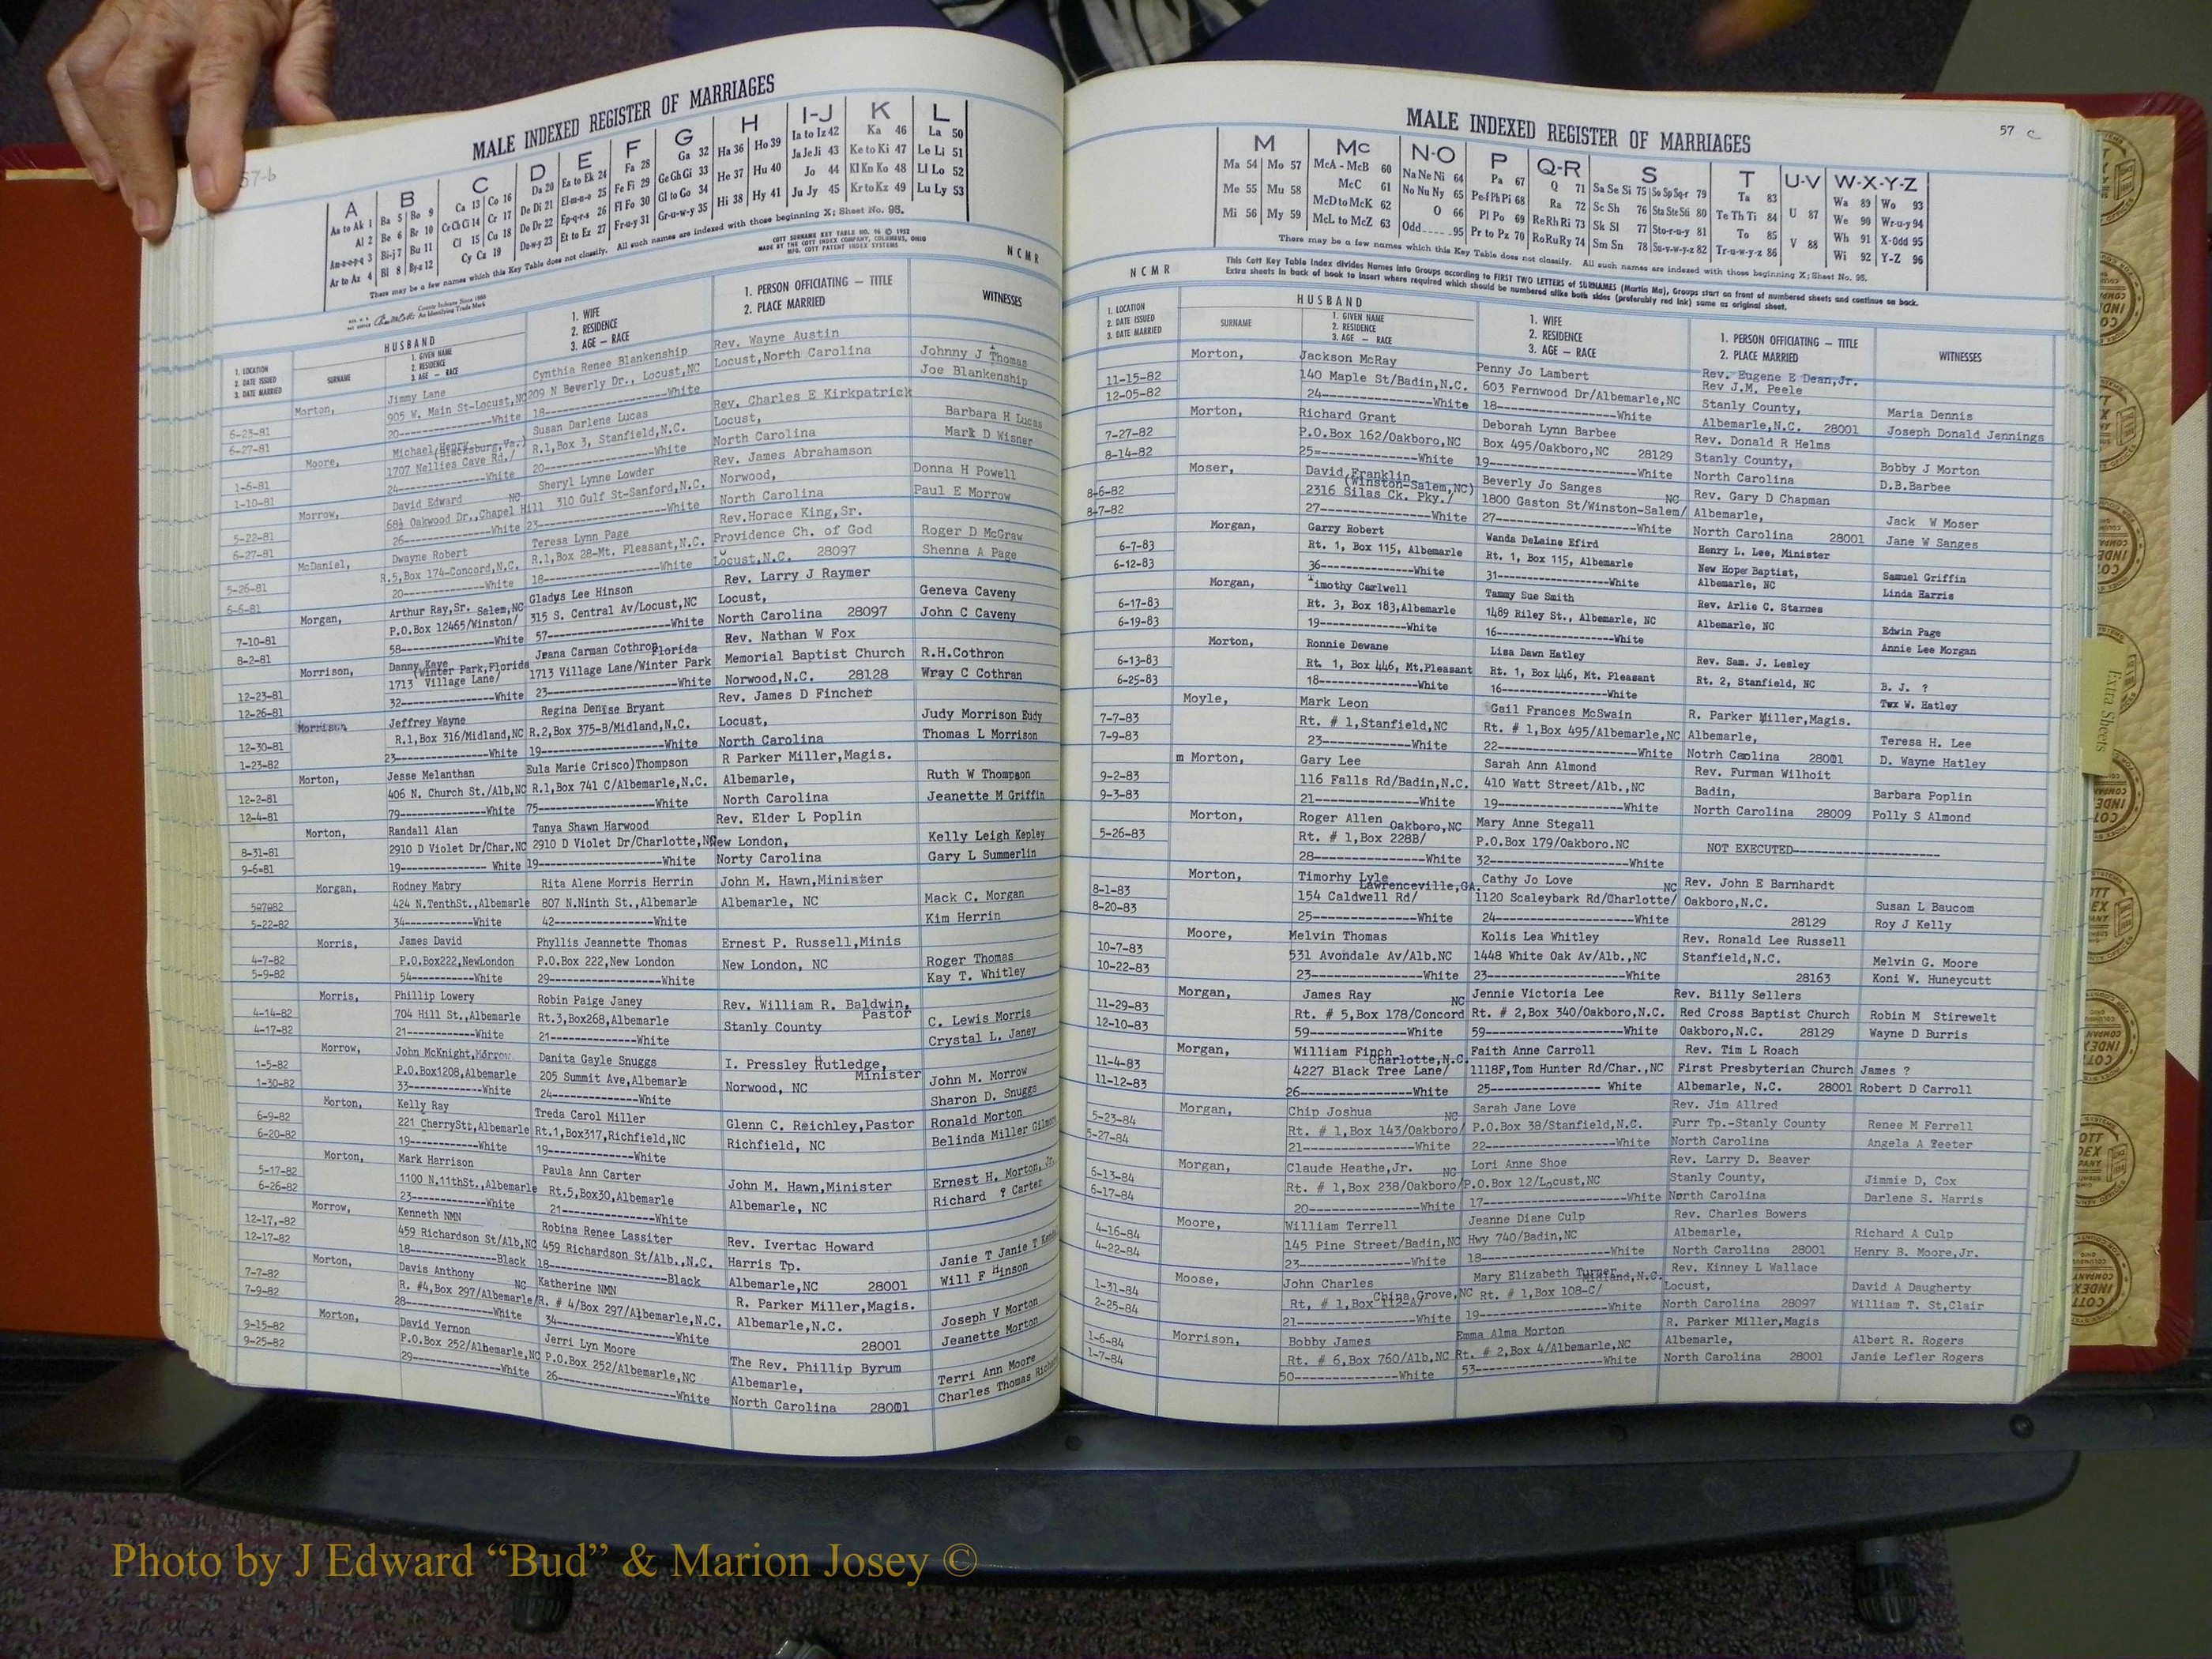 57-b
MALE INDEXED REGISTER OF MARRIAGES
A B C D E F G H I-J K L
Aa to Ak 1 Ba 5 Bo 9 Ca 13 Co 16 Da 20 Ea to Ek 24 Fa 28 Ga 32 Ha 36 Ho 39 Ia to Iz 42 Ka 46 La 50
Al 2 Be 6 Br 10 Ce Ch Ci 14 Cr 17 De Di 21 El-m-n-o 25 Fe Fi 29 Ge Gh Gi 33 He 37 Hu 40 Ja Je Ji 43 Ke to Ki 47 Le Li 51
An-o-p-q 3 Bi-j 7 Bu 11 Cl 15 Cu 18 Do Dr 22 Ep-q-r-s 26 Fl Fo 30 Gl to Go 34 Hi 38 Hy 41 Jo 44 Kl Kn Ko 48 Ll Lo 52
Ar to Az 4 Bl 8 By-z 12 Cy Cz 19 Du-w-y 23 Et to Ez 27 Fr-u-y 31 Gr-u-w-y 35 Ju Jy 45 Kr to Kz 49 Lu Ly 53
There may be a few names which this Key Table does not classify. All such names are indexed with those beginning X; Sheet No. 95.
COTT SURNAME KEY TABLE NO. 96 © 1952
MADE BY THE COTT INDEX COMPANY, COLUMBUS, OHIO
MFG. COTT PATENT INDEX SYSTEMS
NCMR
County Indexes Since 1888
An Identifying Trade Mark
1. LOCATION
2. DATE ISSUED
3. DATE MARRIED
HUSBAND
SURNAME
1. GIVEN NAME
2. RESIDENCE
3. AGE — RACE
1. WIFE
2. RESIDENCE
3. AGE — RACE
1. PERSON OFFICIATING — TITLE
2. PLACE MARRIED
WITNESSES
Morton, Jimmy Lane Cynthia Renee Blankenship Rev. Wayne Austin
6-23-81 905 W. Main St-Locust,NC 209 N Beverly Dr., Locust,NC Locust,North Carolina Johnny J Thomas
6-27-81 20-----White 18-----White Joe Blankenship
Moore, Michael Henry (Blacksburg,Va.) Susan Darlene Lucas Rev. Charles E Kirkpatrick
1-6-81 1707 Nellies Cave Rd./ R.1,Box 3, Stanfield,N.C. Locust, Barbara H Lucas
1-10-81 24-----White 20-----White North Carolina Mark D Wisner
Morrow, David Edward NC Sheryl Lynne Lowder Rev. James Abrahamson
5-22-81 68½ Oakwood Dr.,Chapel Hill 310 Gulf St-Sanford,N.C. Norwood, Donna H Powell
6-27-81 26-----White 23-----White North Carolina Paul E Morrow
McDaniel, Dwayne Robert Teresa Lynn Page Rev.Horace King,Sr.
5-26-81 R.5,Box 174-Concord,N.C. R.1,Box 28-Mt. Pleasant,N.C. Providence Ch. of God Roger D McGraw
6-6-81 20-----White 18-----White Locust,N.C. 28097 Shenna A Page
Morgan, Arthur Ray,Sr. Salem,NC Gladys Lee Hinson Rev. Larry J Raymer
7-10-81 P.O.Box 12465/Winston/ 315 S. Central Av/Locust,NC Locust, Geneva Caveny
8-2-81 58-----White 57-----White North Carolina 28097 John C Caveny
Morrison, Danny Kaye (Winter Park,Florida Jeana Carman Cothron Florida Rev. Nathan W Fox
12-23-81 1713 Village Lane/ 1713 Village Lane/Winter Park Memorial Baptist Church R.H.Cothron
12-26-81 32-----White 23-----White Norwood,N.C. 28128 Wray C Cothran
Morrison, Jeffrey Wayne Regina Denise Bryant Rev. James D Fincher
12-30-81 R.1,Box 316/Midland,NC R.2,Box 375-B/Midland,N.C. Locust, Judy Morrison Eudy
1-23-82 23-----White 19-----White North Carolina Thomas L Morrison
Morton, Jesse Melanthan Eula Marie Crisco)Thompson R Parker Miller,Magis.
12-2-81 406 N. Church St./Alb,NC R.1,Box 741 C/Albemarle,N.C. Albemarle, Ruth W Thompson
12-4-81 79-----White 75-----White North Carolina Jeanette M Griffin
Morton, Randall Alan Tanya Shawn Harwood Rev. Elder L Poplin
8-31-81 2910 D Violet Dr/Char.NC 2910 D Violet Dr/Charlotte,NC New London, Kelly Leigh Kepley
9-6=81 19-----White 19-----White Norty Carolina Gary L Summerlin
Morgan, Rodney Mabry Rita Alene Morris Herrin John M. Hawn,Minister
424 N.TenthSt.,Albemarle 807 N.Ninth St.,Albemarle Albemarle, NC Mack C. Morgan
5-22-82 34-----White 42-----White Kim Herrin
Morris, James David Phyllis Jeannette Thomas Ernest P. Russell,Minis
4-7-82 P.O.Box222,NewLondon P.O.Box 222,New London New London, NC Roger Thomas
5-9-82 54-----White 29-----White Kay T. Whitley
Morris, Phillip Lowery Robin Paige Janey Rev. William R. Baldwin, Pastor
4-14-82 704 Hill St.,Albemarle Rt.3,Box268,Albemarle Stanly County C. Lewis Morris
4-17-82 21-----White 21-----White Crystal L. Janey
Morrow, John McKnight,Morrow Danita Gayle Snuggs I. Pressley Rutledge, Minister
1-5-82 P.O.Box1208,Albemarle 205 Summit Ave,Albemarle Norwood, NC John M. Morrow
1-30-82 33-----White 24-----White Sharon D. Snuggs
Morton, Kelly Ray Treda Carol Miller Glenn C. Reichley,Pastor Ronald Morton
6-9-82 221 CherryStt,Albemarle Rt.1,Box317,Richfield,NC Richfield, NC Belinda Miller Gilmore
6-20-82 19-----White 19-----White
Morton, Mark Harrison Paula Ann Carter John M. Hawn,Minister Ernest H. Morton, Jr.
5-17-82 1100 N.11thSt.,Albemarle Rt.5,Box30,Albemarle Albemarle, NC Richard ? Carter
6-26-82 23-----White 21-----White
Morrow, Kenneth NMN Robina Renee Lassiter Rev. Ivertac Howard
12-17,-82 459 Richardson St/Alb,NC 459 Richardson St/Alb.,N.C. Harris Tp. Janie T Janie T
12-17-82 18-----Black 18-----Black Albemarle,NC 28001 Will F Hinson
Morton, Davis Anthony NC Katherine NMN R. Parker Miller,Magis.
7-7-82 R. #4,Box 297/Albemarle/ R. # 4/Box 297/Albemarle,N.C. Albemarle,N.C. Joseph V Morton
7-9-82 28-----White 34-----White 28001 Jeanette Morton
Morton, David Vernon Jerri Lyn Moore The Rev. Phillip Byrum
9-15-82 P.O.Box 252/Albemarle,NC P.O.Box 252/Albemarle,NC Albemarle, Terri Ann Moore
9-25-82 29-----White 26-----White North Carolina 28001 Charles Thomas
57 c
MALE INDEXED REGISTER OF MARRIAGES
M Mc N-O P Q-R S T U-V W-X-Y-Z
Ma 54 Mo 57 McA - McB 60 Na Ne Ni 64 Pa 67 Q 71 Sa Se Si 75 So Sp Sq-r 79 Ta 83 U 87 Wa 89 Wo 93
Me 55 Mu 58 McC 61 No Nu Ny 65 Pe-f Ph Pi 68 Ra 72 Sc Sh 76 Sta Ste Sti 80 Te Th Ti 84 V 88 We 90 Wr-u-y 94
Mi 56 My 59 McD to McK 62 O 66 Pl Po 69 Re Rh Ri 73 Sk Sl 77 Sto-r-u-y 81 To 85 Wh 91 X-Odd 95
McL to McZ 63 Odd 95 Pr to Pz 70 Ro Ru Ry 74 Sm Sn 78 Su-v-w-y-z 82 Tr-u-w-y-z 86 Wi 92 Y-Z 96
There may be a few names which this Key Table does not classify. All such names are indexed with those beginning X; Sheet No. 95.
NCMR
This Cott Key Table Index divides Names into Groups according to FIRST TWO LETTERS of SURNAMES (Martin Ma), Groups start on front of numbered sheets and continue on back.
Extra sheets in back of book to insert where required which should be numbered alike both sides (preferably red ink) same as original sheet.
1. LOCATION
2. DATE ISSUED
3. DATE MARRIED
HUSBAND
SURNAME
1. GIVEN NAME
2. RESIDENCE
3. AGE — RACE
1. WIFE
2. RESIDENCE
3. AGE — RACE
1. PERSON OFFICIATING — TITLE
2. PLACE MARRIED
WITNESSES
Morton, Jackson McRay Penny Jo Lambert Rev. Eugene E Dean,Jr.
Rev J.M. Peele
11-15-82 140 Maple St/Badin,N.C. 603 Fernwood Dr/Albemarle,NC Stanly County, Maria Dennis
12-05-82 24-----White 18-----White Albemarle,N.C. 28001 Joseph Donald Jennings
Morton, Richard Grant Deborah Lynn Barbee Rev. Donald R Helms
7-27-82 P.O.Box 162/Oakboro,NC Box 495/Oakboro,NC 28129 Stanly County, Bobby J Morton
8-14-82 25=-----White 19-----White North Carolina D.B.Barbee
Moser, David Franklin (Winston-Salem,NC) Beverly Jo Sanges NC Rev. Gary D Chapman
8-6-82 2316 Silas Ck. Pky./ 1800 Gaston St/Winston-Salem/ Albemarle, Jack W Moser
8-7-82 27-----White 27-----White North Carolina 28001 Jane W Sanges
Morgan, Garry Robert Wanda DeLaine Efird Henry L. Lee, Minister
6-7-83 Rt. 1, Box 115, Albemarle Rt. 1, Box 115, Albemarle New Hope Baptist, Samuel Griffin
6-12-83 36-----White 31-----White Albemarle, NC Linda Harris
Morgan, Timothy Carlwell Tammy Sue Smith Rev. Arlie C. Starnes
6-17-83 Rt. 3, Box 183,Albemarle 1489 Riley St., Albemarle, NC Albemarle, NC Edwin Page
6-19-83 19-----White 16-----White Annie Lee Morgan
Morton, Ronnie Dewane Lisa Dawn Hatley Rev. Sam. J. Lesley
6-13-83 Rt. 1, Box 446, Mt.Pleasant Rt. 1, Box 446, Mt. Pleasant Rt. 2, Stanfield, NC B. J. ?
6-25-83 18-----White 16-----White Tex W. Hatley
Moyle, Mark Leon Gail Frances McSwain R. Parker Miller,Magis.
7-7-83 Rt. # 1,Stanfield,NC Rt. # 1,Box 495/Albemarle,NC Albemarle, Teresa H. Lee
7-9-83 23-----White 22-----White Notrh Carolina 28001 D. Wayne Hatley
m Morton, Gary Lee Sarah Ann Almond Rev. Furman Wilhoit
9-2-83 116 Falls Rd/Badin,N.C. 410 Watt Street/Alb.,NC Badin, Barbara Poplin
9-3-83 21-----White 19-----White North Carolina 28009 Polly S Almond
Morton, Roger Allen Oakboro,NC Mary Anne Stegall
5-26-83 Rt. # 1,Box 228B/ P.O.Box 179/Oakboro.NC NOT EXECUTED-----
28-----White 32-----White
Morton, Timorhy Lyle Lawrenceville,GA. Cathy Jo Love NC Rev. John E Barnhardt
8-1-83 154 Caldwell Rd/ 1120 Scaleybark Rd/Charlotte/ Oakboro,N.C. Susan L Baucom
8-20-83 25-----White 24-----White 28129 Roy J Kelly
Moore, Melvin Thomas Kolis Lea Whitley Rev. Ronald Lee Russell
10-7-83 531 Avondale Av/Alb.NC 1448 White Oak Av/Alb.,NC Stanfield,N.C. Melvin G. Moore
10-22-83 23-----White 23-----White 28163 Koni W. Huneycutt
Morgan, James Ray NC Jennie Victoria Lee Rev. Billy Sellers
11-29-83 Rt. # 5,Box 178/Concord Rt. # 2,Box 340/Oakboro,N.C. Red Cross Baptist Church Robin M Stirewelt
12-10-83 59-----White 59-----White Oakboro,N.C. 28129 Wayne D Burris
Morgan, William Finch Charlotte,N.C. Faith Anne Carroll Rev. Tim L Roach
11-4-83 4227 Black Tree Lane/ 1118F,Tom Hunter Rd/Char.,NC First Presbyterian Church James ?
11-12-83 26-----White 25-----White Albemarle, N.C. 28001 Robert D Carroll
Morgan, Chip Joshua NC Sarah Jane Love Rev. Jim Allred
5-23-84 Rt. # 1,Box 143/Oakboro/ P.O.Box 38/Stanfield,N.C. Furr Tp.-Stanly County Renee M Ferrell
5-27-84 21-----White 22-----White North Carolina Angela A Teeter
Morgan, Claude Heathe,Jr. NC Lori Anne Shoe Rev. Larry D. Beaver
6-13-84 Rt. # 1,Box 238/Oakboro/ P.O.Box 12/Locust,NC Stanly County, Jimmie D, Cox
6-17-84 20-----White 17-----White North Carolina Darlene S. Harris
Moore, William Terrell Jeanne Diane Culp Rev. Charles Bowers
4-16-84 145 Pine Street/Badin,NC Hwy 740/Badin,NC Albemarle, Richard A Culp
4-22-84 23-----White 18-----White North Carolina 28001 Henry B. Moore,Jr.
Moose, John Charles China Grove,NC Mary Elizabeth Turner Midland,N.C. Rev. Kinney L Wallace
1-31-84 Rt, # 1,Box 112-A/ Rt. # 1,Box 108-C/ Locust, David A Daugherty
2-25-84 21-----White 19-----White North Carolina 28097 William T. St,Clair
Morrison, Bobby James Emma Alma Morton R. Parker Miller,Magis
1-6-84 Rt. # 6,Box 760/Alb,NC Rt. # 2,Box 4/Albemarle,NC Albemarle, Albert R. Rogers
1-7-84 50-----White 53-----White North Carolina 28001 Janie Lefler Rogers
Extra Sheets
Photo by J Edward “Bud” & Marion Josey ©